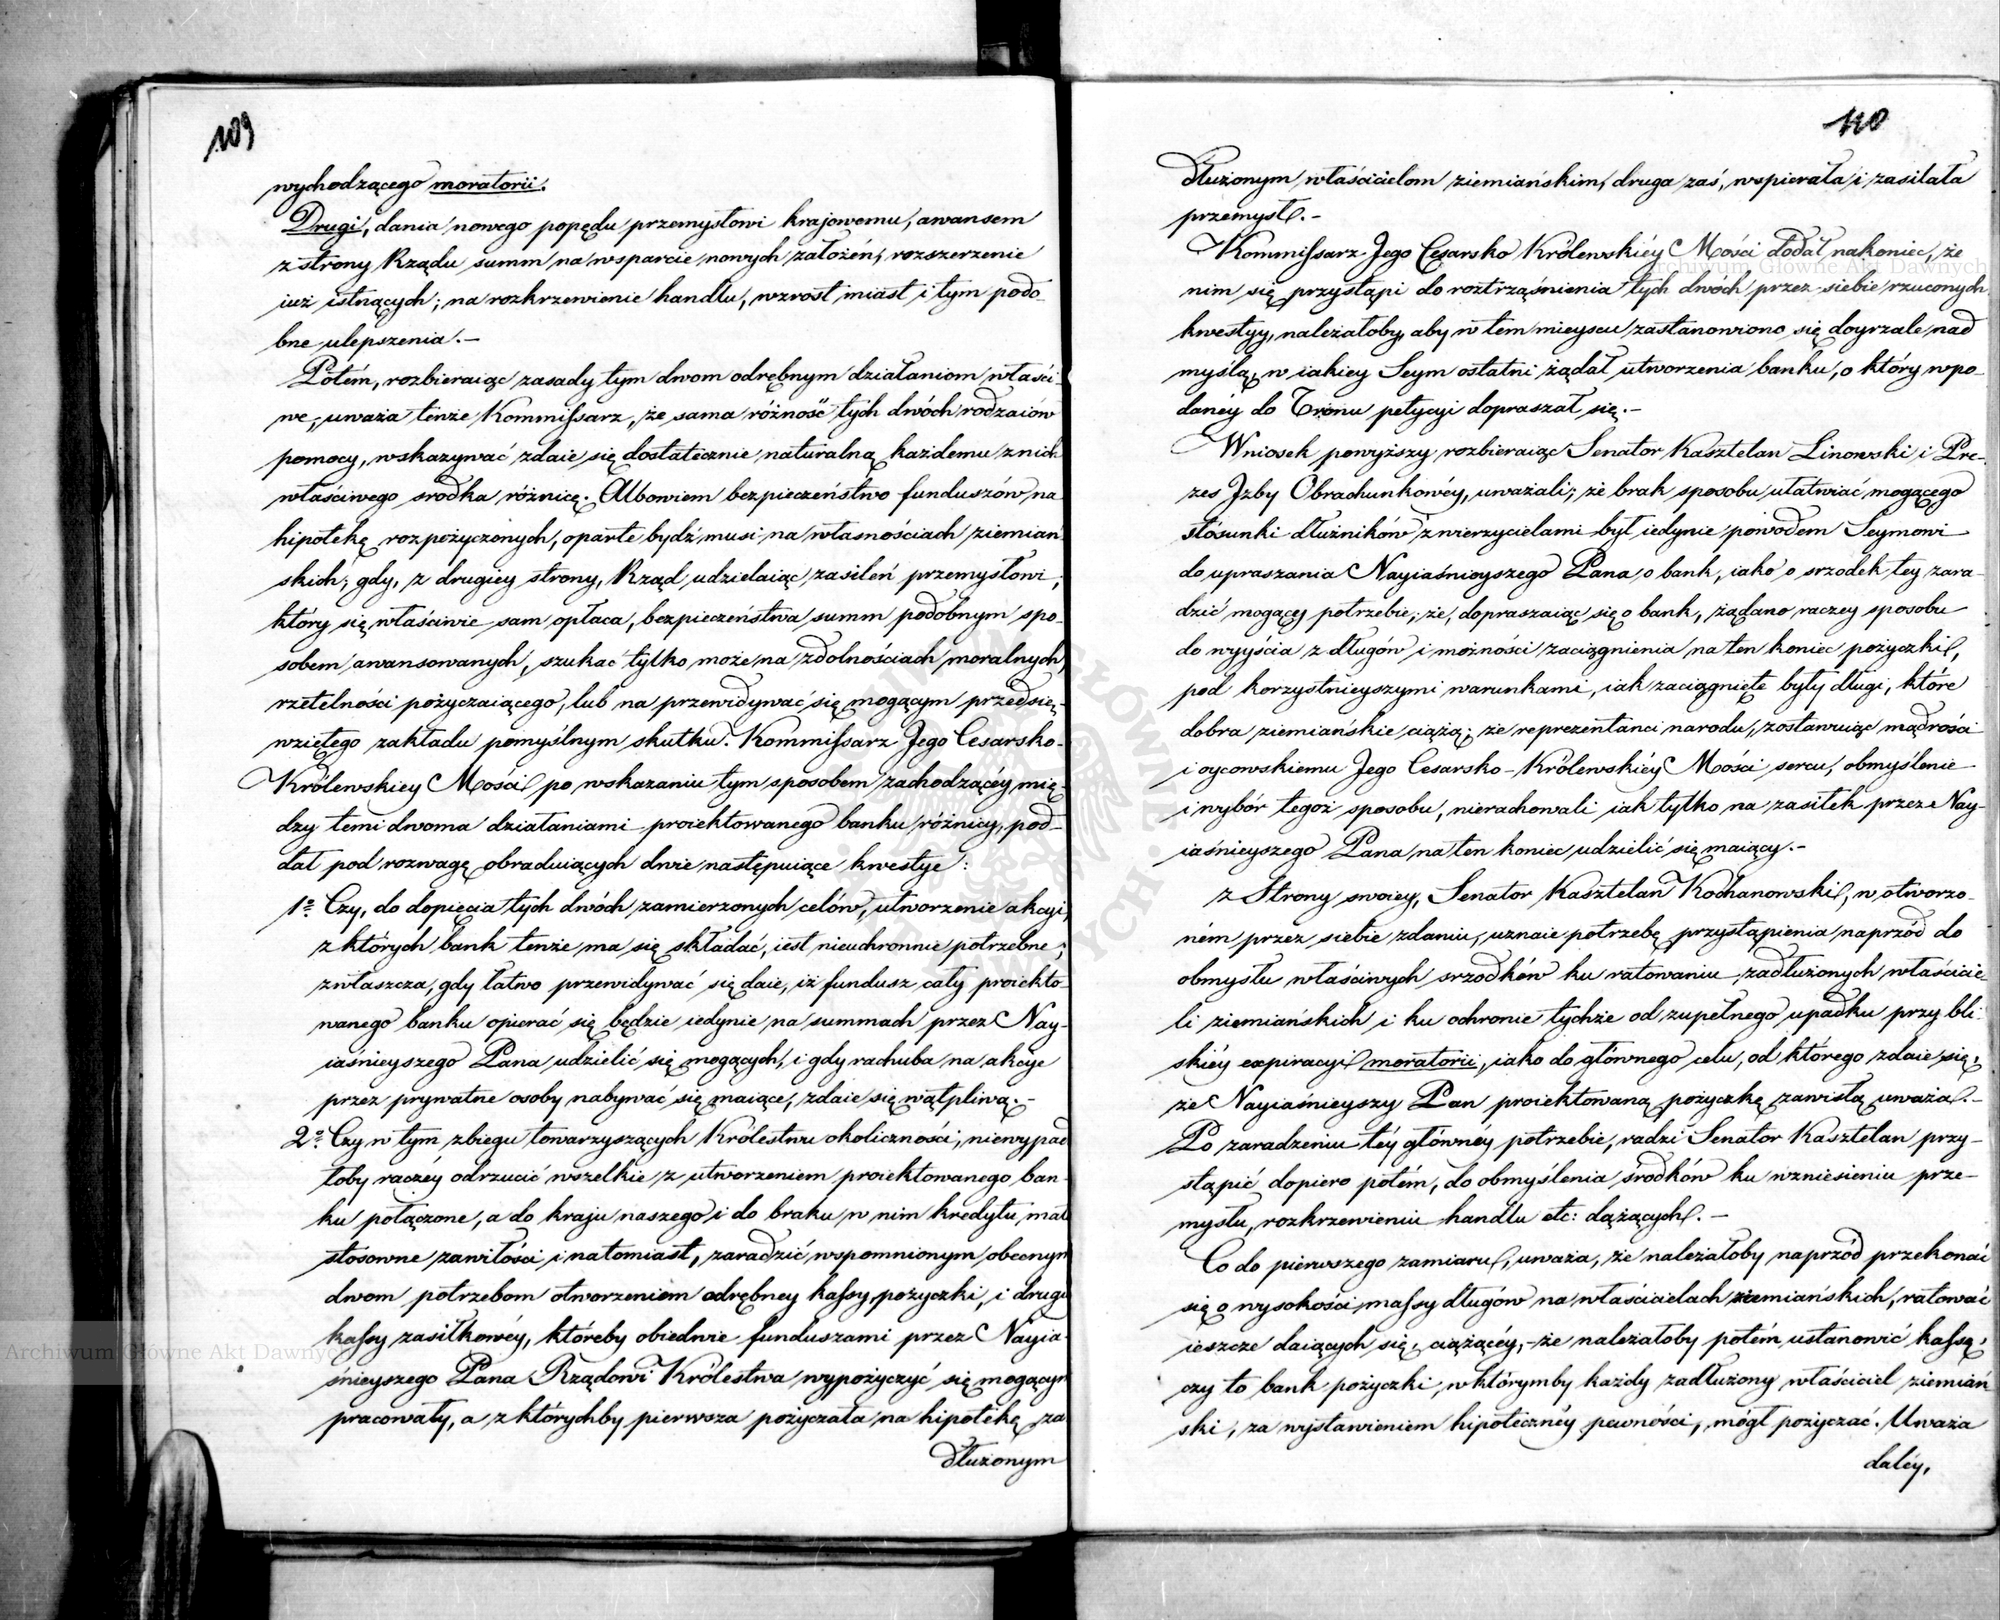 109
wychodzącego moratorii.
Drugi, dania nowego popędu przemysłowi krajowemu, awansem
z strony Rządu summ na wsparcie nowych założeń, rozszerzenie
iuż istnących; na rozkrzewienie handlu, wzrost miast i tym podo-
bne ulepszenia.-
Potém, rozbieraiąc zasady tym dwom odrębnym działaniom właści-
we, uważa tenże Kommissarz, że sama różność tych dwóch rodzaiów
pomocy, wskazywać zdaie się dostatecznie naturalną każdemu z nich
właściwego srodka różnicę. Albowiem bezpieczeństwo funduszów na
hipotekę rozpożyczonych, oparte bydź musi na własnościach ziemiań-
skich; gdy, z drugiey strony, Rząd udzielaiąc zasileń przemysłowi,
który się właściwie sam opłaca, bezpieczeństwa summ podobnym spo-
sobem awansowanych, szukać tylko może na zdolnościach moralnych,
rzetelności pożyczaiącego, lub na przewidywać się mogącym przedsię-
wziętego zakładu pomyślnym skutku. Kommissarz Jego Cesarsko-
Królewskiey Mości po wskazaniu tym sposobem zachodzącéy mię-
dzy temi dwoma działaniami proiektowanego banku różnicy, pod-
dał pod rozwagę obraduiących dwie następuiące kwestye:
1o Czy, do dopięcia tych dwóch zamierzonych celów, utworzenie akcyi,
z których bank tenże ma się składać, iest nieuchronnie potrzebne;
zwłaszcza, gdy łatwo przewidywać się daie, iż fundusz cały proiekto-
wanego banku opierać się będzie iedynie na summach przez Nay-
iaśnieyszego Pana udzielić się mogących, i gdy rachuba na akcye
przez prywatne osoby nabywać się maiące, zdaie się wątpliwą.-
2o Czy w tym zbiegu towarzyszących Królestwu okoliczności, niewypad
łoby raczéy odrzucić wszelkie z utworzeniem proiektowanego ban-
ku połączone, a do kraju naszego i do braku w nim kredytu, mało
stosowne zawiłości i natomiast, zaradzić wspomnionym obecnym
dwom potrzebom otworzeniem odrębney kassy pożyczki, i drugi
kassy zasiłkowéy, któreby obiedwie funduszami przez Nayia-
śnieyszego Pana Rządowi Królestwa wypożyczyć się mogącym
pracowały, a z którychby pierwsza pożyczała na hipotekę za
dłużonym
110
dłużonym właścicielom ziemiańskim, druga zaś, wspierała i zasilała
przemysł.-
Kommissarz Jego Cesarsko Królewskiéy Mości dodał nakoniec, że
nim się przystąpi do roztrząśnienia tych dwóch przez siebie rzuconych
kwestyy, należałoby, aby w tem mieyscu zastanowiono się doyrzale nad
myślą, w iakiey Seym ostatni żądał utworzenia banku, o który w po-
danéy do Tronu petycyi dopraszał się.-
Wniosek powyższy rozbieraiąc Senator Kasztelan Linowski i Pre-
zes Jzby Obrachunkowéy, uważali; że brak sposobu ułatwiać mogącego
stósunki dłużników z wierzycielami był iedynie powodem Seymowi
do upraszania Nayiaśnieyszego Pana o bank, iako o srzodek tey zara-
dzić mogący potrzebie; że, dopraszaiąc się o bank, żądano raczey sposobu
do wyyścia z długów i możności zaciągnienia na ten koniec pożyczki,
pod korzystnieyszymi warunkami, iak zaciągnięte były długi, które
dobra ziemiańskie ciążą; że reprezentanci narodu, zostawuiąc mądrości
i oycowskiemu Jego Cesarsko-Królewskiéy Mości sercu, obmyślenie
i wybór tegoż sposobu, nierachowali iak tylko na zasiłek przez Nay-
iaśnieyszego Pana na ten koniec udzielić się maiący.-
z Strony swoiey, Senator Kasztelan Kochanowski, w otworzo-
ném przez siebie zdaniu, uznaie potrzebę przystąpienia naprzód do
obmysłu właściwych srzodków ku ratowaniu zadłużonych właścicie-
li ziemiańskich i ku ochronie tychże od zupełnego upadku przy bli-
skiéy expiracyi moratorii, iako do głównego celu, od którego zdaie się,
że Nayiaśnieyszy Pan proiektowaną pożyczkę zawisłą uważa.-
Po zaradzeniu téy głównéy potrzebie, radzi Senator Kasztelan przy-
stąpić dopiero potém, do obmyślenia środków ku wzniesieniu prze-
mysłu, rozkrzewieniu handlu etc: dążących.-
Co do pierwszego zamiaru, uważa, że należałoby naprzód przekonać
się o wysokości massy długów na właścicielach ziemiańskich, ratować
ieszcze daiących się, ciążącéy,-że należałoby potém ustanowić kassę,
czy to bank pożyczki, w którymby każdy zadłużony właściciel ziemiań
ski, za wystawieniem hipotecznéy pewności, mógł pożyczać. Uważa
daléy,
Archiwum Główne Akt Dawnych
Archiwum Główne Akt Dawnych